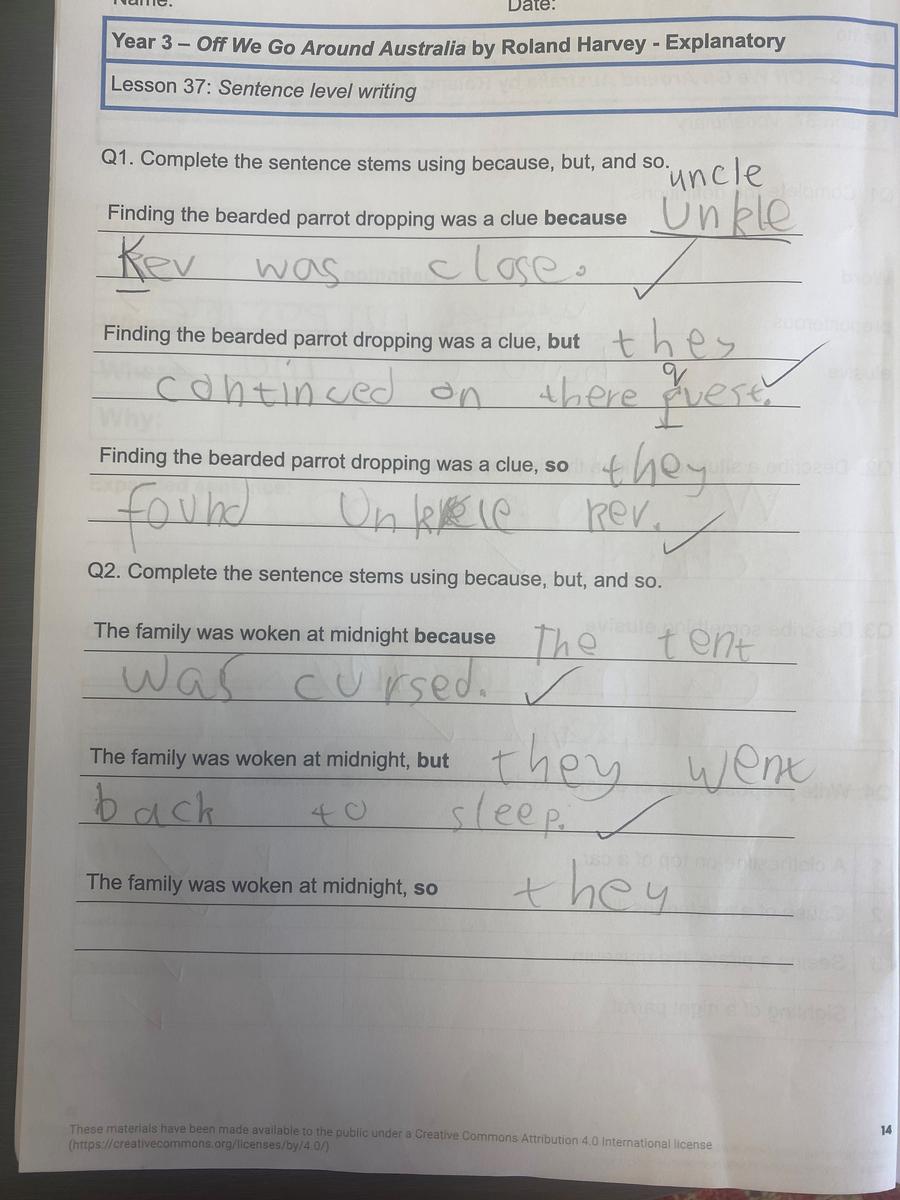 Name:
Date:
Year 3 – Off We Go Around Australia by Roland Harvey - Explanatory
Lesson 37: Sentence level writing
Q1. Complete the sentence stems using because, but, and so.
uncle
Finding the bearded parrot dropping was a clue because Unkle
Kev was close.
Finding the bearded parrot dropping was a clue, but they
q
continued on there quest.
Finding the bearded parrot dropping was a clue, so they
found Unkle kev.
Q2. Complete the sentence stems using because, but, and so.
The family was woken at midnight because The tent
was cursed.
The family was woken at midnight, but they went
back to sleep.
The family was woken at midnight, so they
These materials have been made available to the public under a Creative Commons Attribution 4.0 International license
(https://creativecommons.org/licenses/by/4.0/)
14